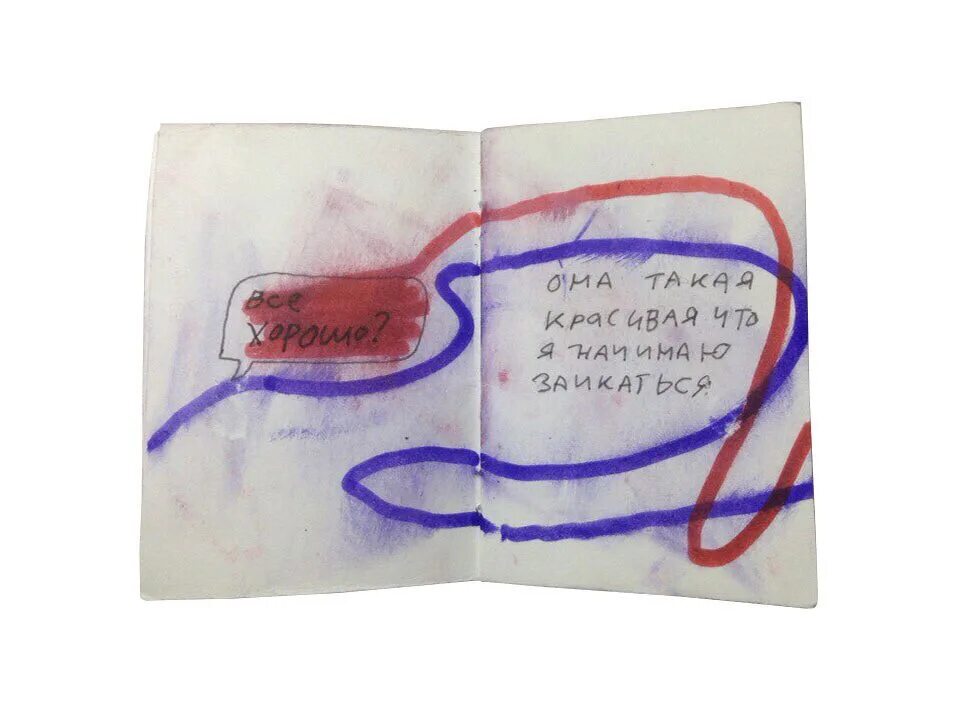 все
хорошо?
ОНА ТАКАЯ
КРАСИВАЯ ЧТО
Я НАЧИНАЮ
ЗАИКАТЬСЯ